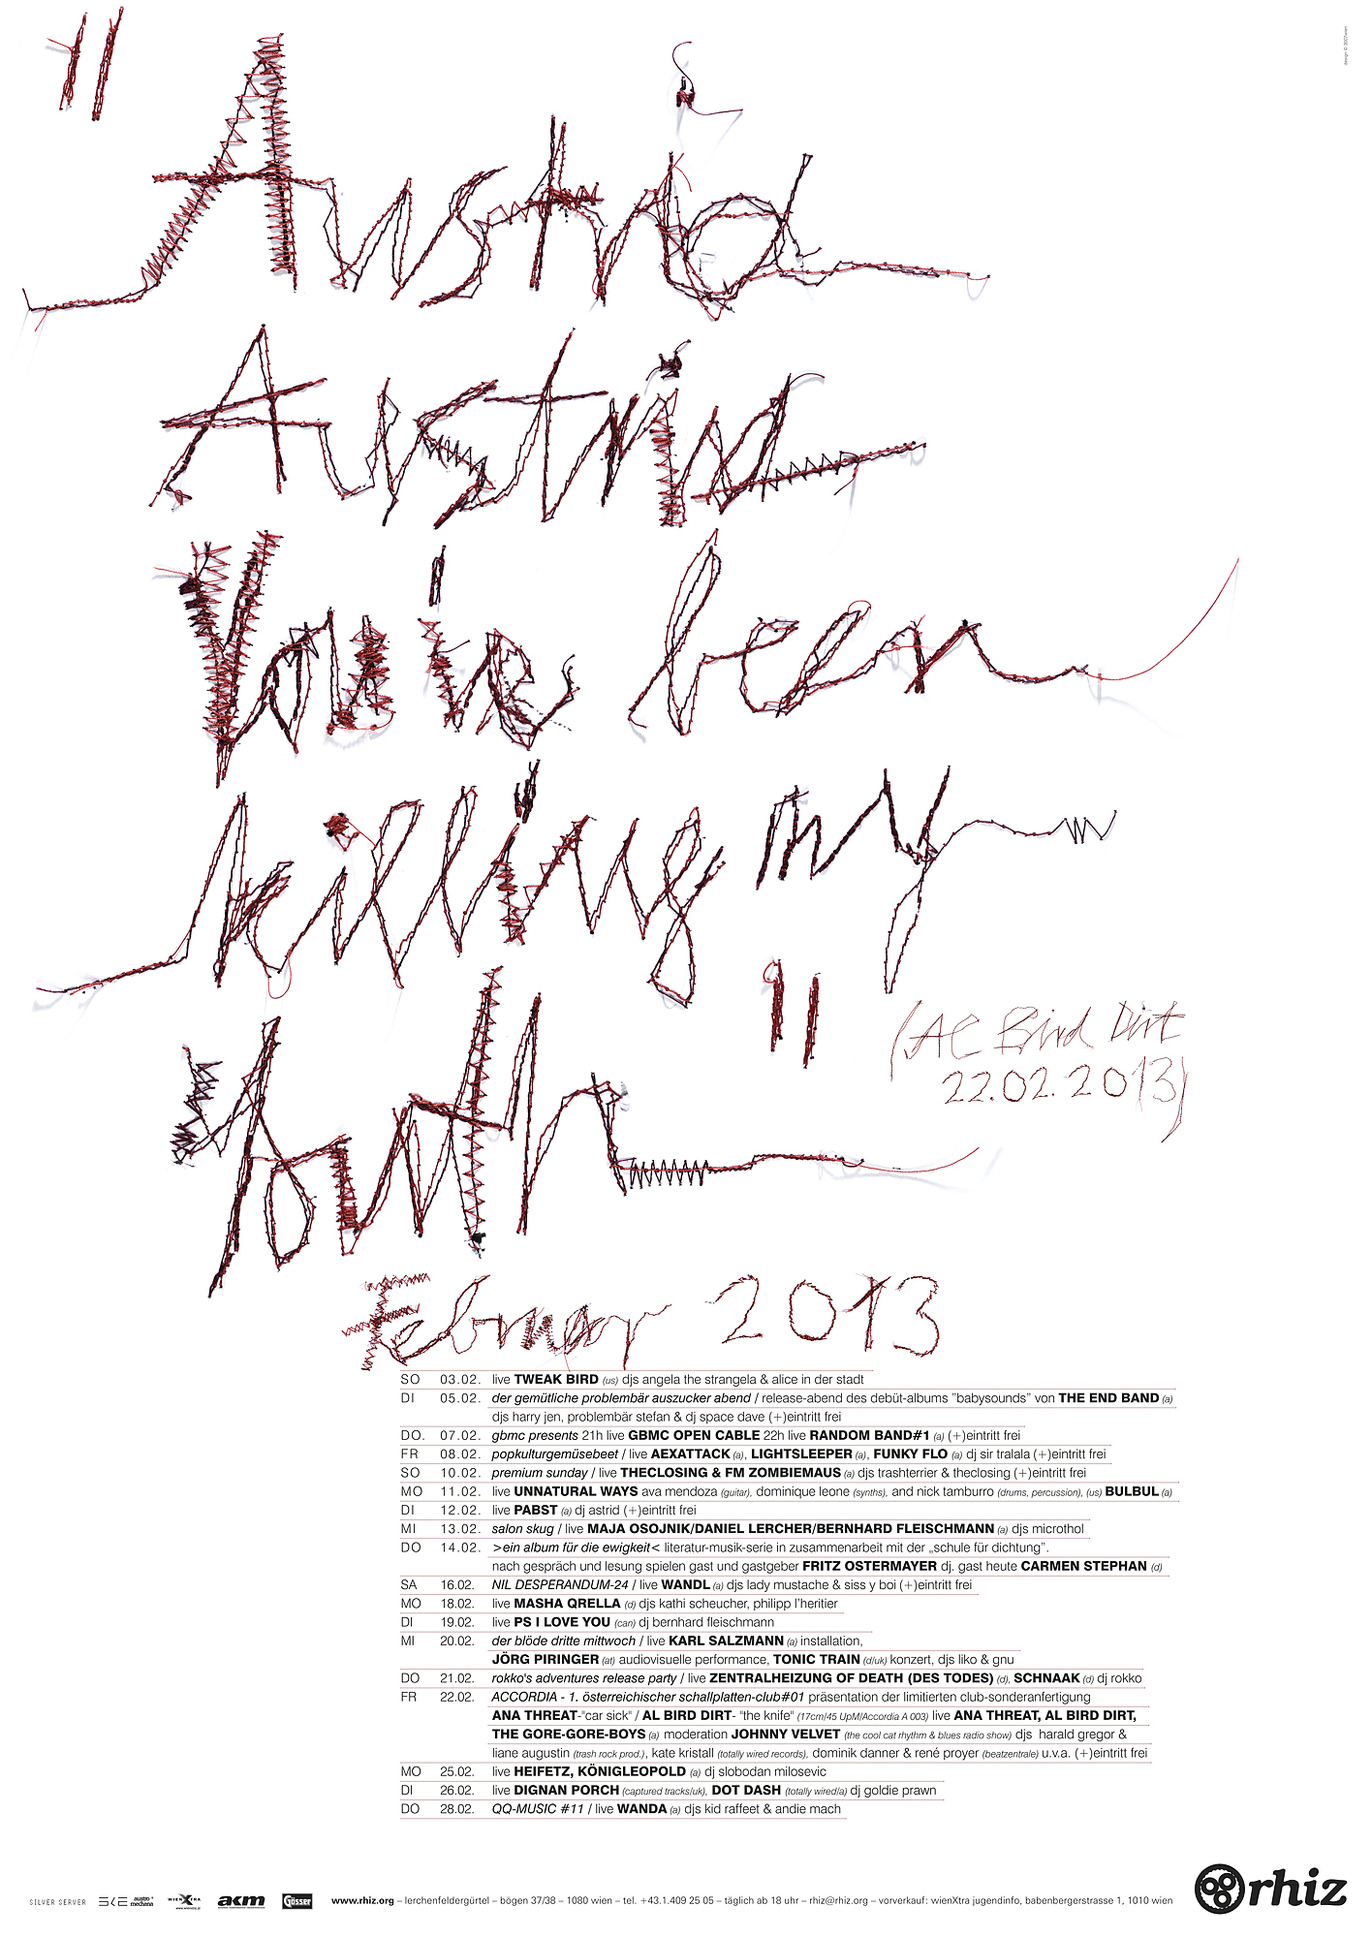 design © 3007wien
"Austria
Austria
You've been
killing my
Youth"
(AC Bird Dirt
22.02.2013)
Februar 2013
SO 03.02. live TWEAK BIRD (us) djs angela the strangela & alice in der stadt
DI 05.02. der gemütliche problembär auszucker abend / release-abend des debüt-albums "babysounds" von THE END BAND (a)
djs harry jen, problembär stefan & dj space dave (+)eintritt frei
DO. 07.02. gbmc presents 21h live GBMC OPEN CABLE 22h live RANDOM BAND#1 (a) (+)eintritt frei
FR 08.02. popkulturgemüsebeet / live AEXATTACK (a), LIGHTSLEEPER (a), FUNKY FLO (a) dj sir tralala (+)eintritt frei
SO 10.02. premium sunday / live THECLOSING & FM ZOMBIEMAUS (a) djs trashterrier & theclosing (+)eintritt frei
MO 11.02. live UNNATURAL WAYS ava mendoza (guitar), dominique leone (synths), and nick tamburro (drums, percussion), (us) BULBUL (a)
DI 12.02. live PABST (a) dj astrid (+)eintritt frei
MI 13.02. salon skug / live MAJA OSOJNIK/DANIEL LERCHER/BERNHARD FLEISCHMANN (a) djs microthol
DO 14.02. >ein album für die ewigkeit< literatur-musik-serie in zusammenarbeit mit der „schule für dichtung".
nach gespräch und lesung spielen gast und gastgeber FRITZ OSTERMAYER dj. gast heute CARMEN STEPHAN (d)
SA 16.02. NIL DESPERANDUM-24 / live WANDL (a) djs lady mustache & siss y boi (+)eintritt frei
MO 18.02. live MASHA QRELLA (d) djs kathi scheucher, philipp l'heritier
DI 19.02. live PS I LOVE YOU (can) dj bernhard fleischmann
MI 20.02. der blöde dritte mittwoch / live KARL SALZMANN (a) installation,
JÖRG PIRINGER (at) audiovisuelle performance, TONIC TRAIN (d/uk) konzert, djs liko & gnu
DO 21.02. rokko's adventures release party / live ZENTRALHEIZUNG OF DEATH (DES TODES) (d), SCHNAAK (d) dj rokko
FR 22.02. ACCORDIA - 1. österreichischer schallplatten-club#01 präsentation der limitierten club-sonderanfertigung
ANA THREAT-"car sick" / AL BIRD DIRT- "the knife" (17cm/45 UpM/Accordia A 003) live ANA THREAT, AL BIRD DIRT,
THE GORE-GORE-BOYS (a) moderation JOHNNY VELVET (the cool cat rhythm & blues radio show) djs harald gregor &
liane augustin (trash rock prod.), kate kristall (totally wired records), dominik danner & rené proyer (beatzentrale) u.v.a. (+)eintritt frei
MO 25.02. live HEIFETZ, KÖNIGLEOPOLD (a) dj slobodan milosevic
DI 26.02. live DIGNAN PORCH (captured tracks/uk), DOT DASH (totally wired/a) dj goldie prawn
DO 28.02. QQ-MUSIC #11 / live WANDA (a) djs kid raffeet & andie mach
SILVER SERVER SKE austro mechana WIENXTRA akm Gösser www.rhiz.org – lerchenfeldergürtel – bögen 37/38 – 1080 wien – tel. +43.1.409 25 05 – täglich ab 18 uhr – rhiz@rhiz.org – vorverkauf: wienXtra jugendinfo, babenbergerstrasse 1, 1010 wien rhiz